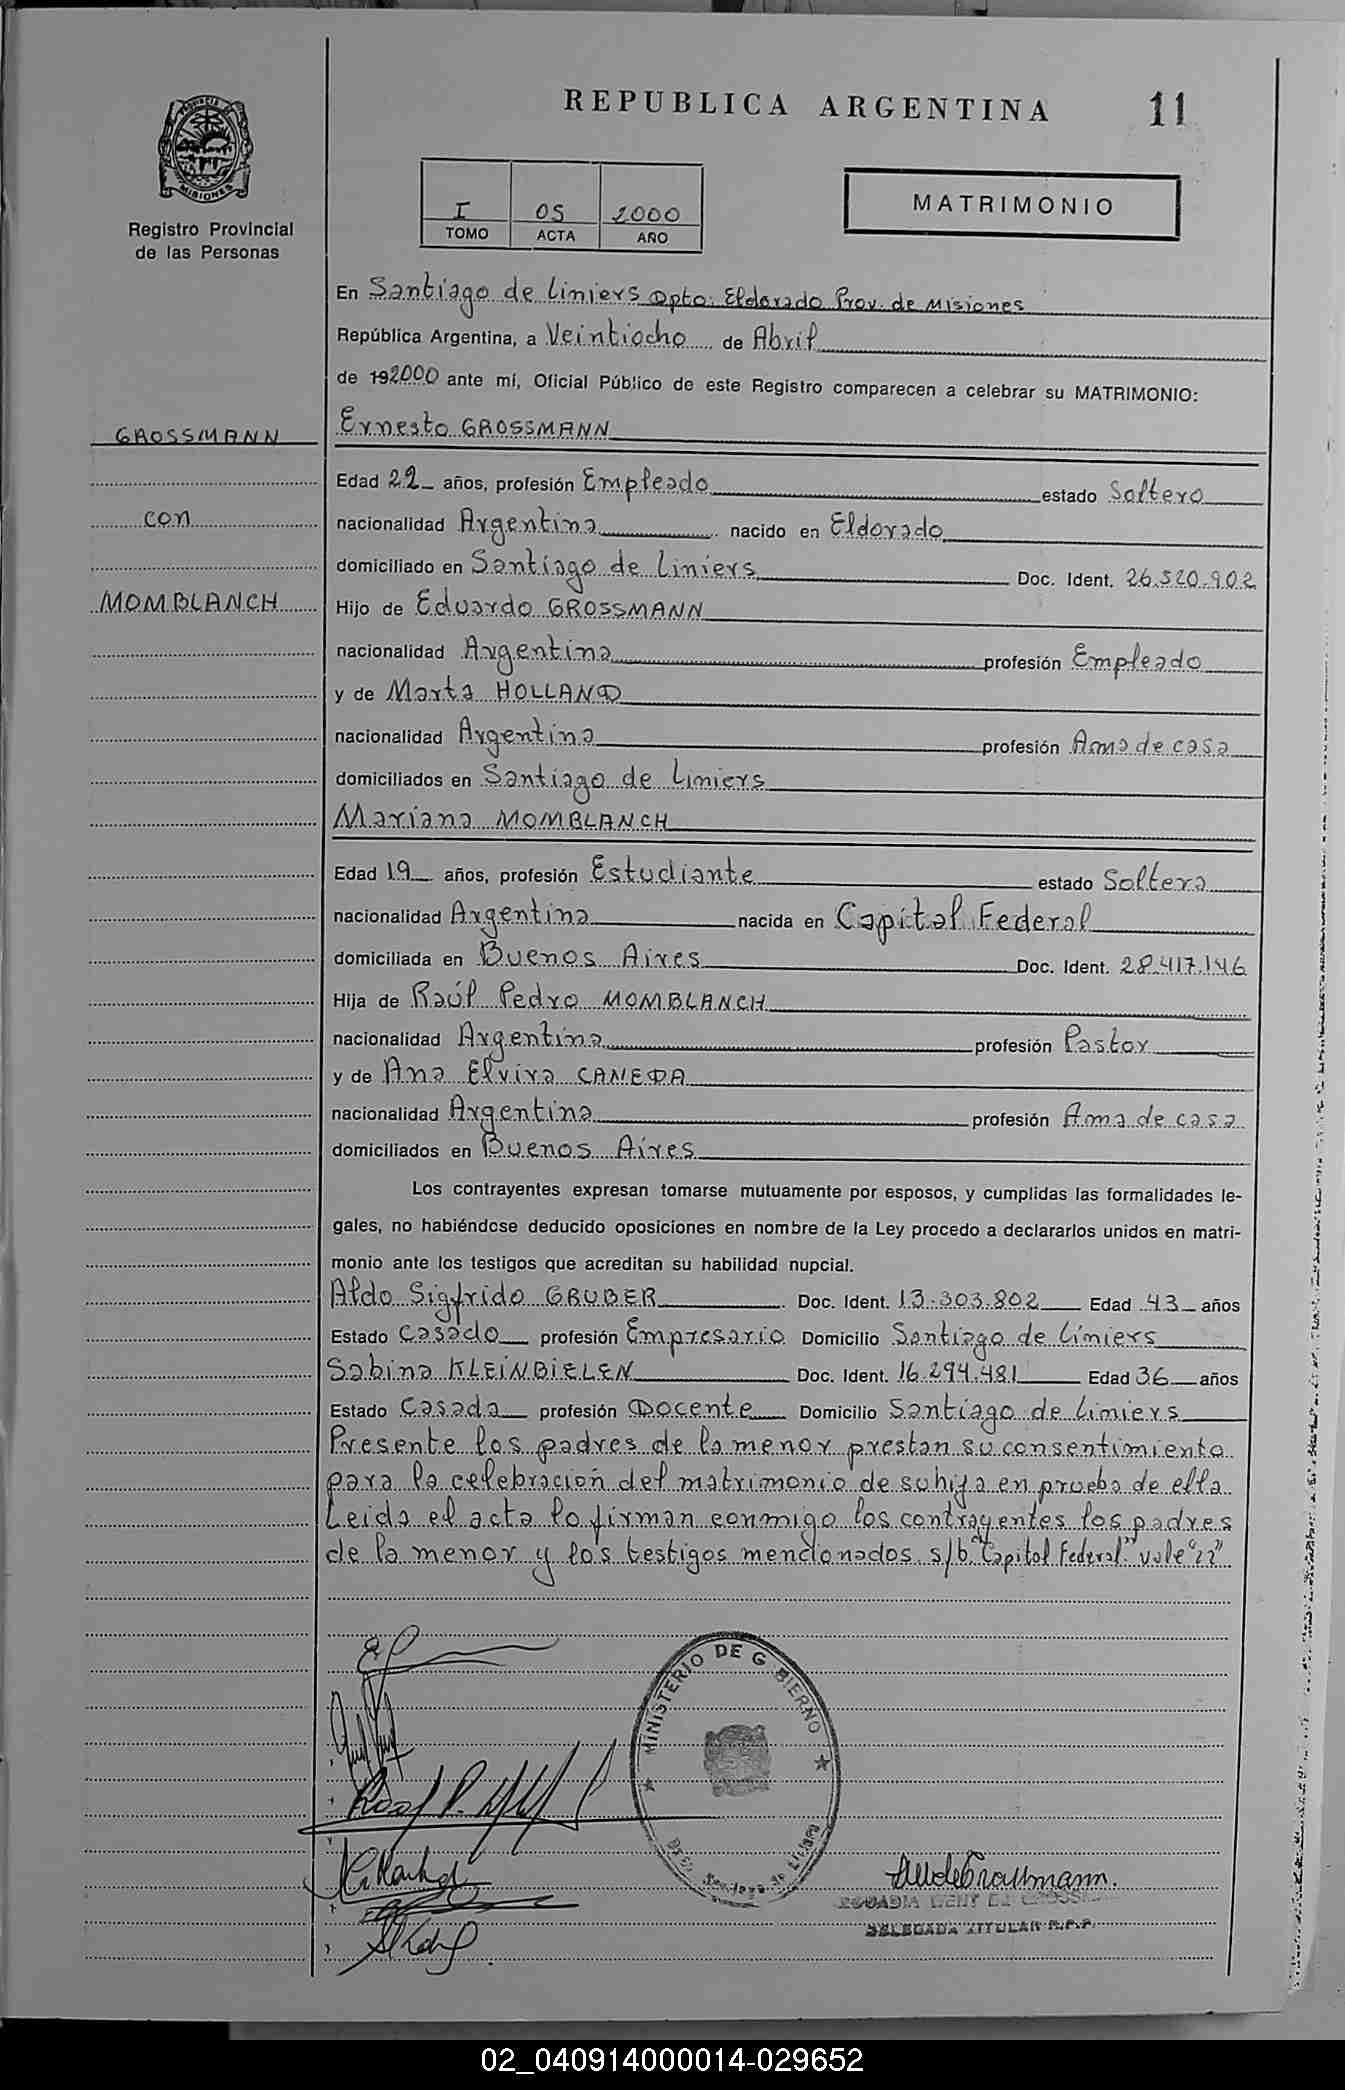 REPUBLICA ARGENTINA 11
PROVINCIA DE MISIONES
Registro Provincial
de las Personas
I 05 2000
TOMO ACTA AÑO
MATRIMONIO
En Santiago de Liniers Dpto. Eldorado Prov. de Misiones
República Argentina, a Veintiocho de Abril
de 192000 ante mí, Oficial Público de este Registro comparecen a celebrar su MATRIMONIO:
GROSSMANN
Ernesto GROSSMANN
Edad 22 años, profesión Empleado estado Soltero
con
nacionalidad Argentina nacido en Eldorado
domiciliado en Santiago de Liniers Doc. Ident. 26.520.902
MOMBLANCH
Hijo de Eduardo GROSSMANN
nacionalidad Argentina profesión Empleado
y de Marta HOLLAND
nacionalidad Argentina profesión Ama de casa
domiciliados en Santiago de Liniers
Mariana MOMBLANCH
Edad 19 años, profesión Estudiante estado Soltera
nacionalidad Argentina nacida en Capital Federal
domiciliada en Buenos Aires Doc. Ident. 28.417.146
Hija de Raúl Pedro MOMBLANCH
nacionalidad Argentina profesión Pastor
y de Ana Elvira CANEDA
nacionalidad Argentina profesión Ama de casa
domiciliados en Buenos Aires
Los contrayentes expresan tomarse mutuamente por esposos, y cumplidas las formalidades le-
gales, no habiéndose deducido oposiciones en nombre de la Ley procedo a declararlos unidos en matri-
monio ante los testigos que acreditan su habilidad nupcial.
Aldo Sigfrido GRUBER Doc. Ident. 13.303.802 Edad 43 años
Estado Casado profesión Empresario Domicilio Santiago de Liniers
Sabina KLEINBIELEN Doc. Ident. 16.294.481 Edad 36 años
Estado Casada profesión Docente Domicilio Santiago de Liniers
Presente los padres de la menor prestan su consentimiento
para la celebración del matrimonio de su hija en prueba de ella
Leida el acta lo firman conmigo los contrayentes los padres
de la menor y los testigos mencionados. s/b "Capital Federal" vale "22"
MINISTERIO DE G BIERNO
DELEGADA TITULAR R.P.P.
02_040914000014-029652